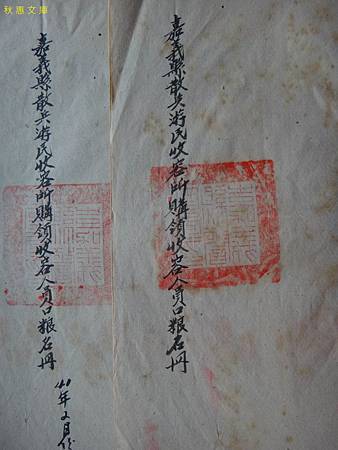 秋惠文庫
嘉義縣散兵游民收容所購領收容人員口粮名冊
嘉義縣散兵游民收容所購領收容人員口粮名冊